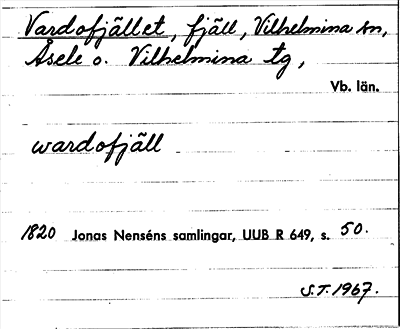 Vardofjället, fjäll, Vilhelmina sn,
Åsele o. Vilhelmina tg,
Vb. län.
wardofjäll
1820 Jonas Nenséns samlingar, UUB R 649, s. 50.
S.T. 1967.